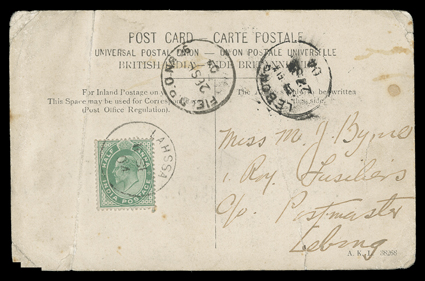 POST CARD — CARTE POSTALE
UNIVERSAL POSTAL UNION — UNION POSTALE UNIVERSELLE
BRITISH INDIA
For Inland Postage only
This Space may be used for
(Post Office Regulation).
The
to be written
this side.
LEBONG
LAHSSA
INDIA POSTAGE
Miss M. J. Byrne
1 Roy. Fusiliers
C/o Postmaster
Lebong
A. K. L.